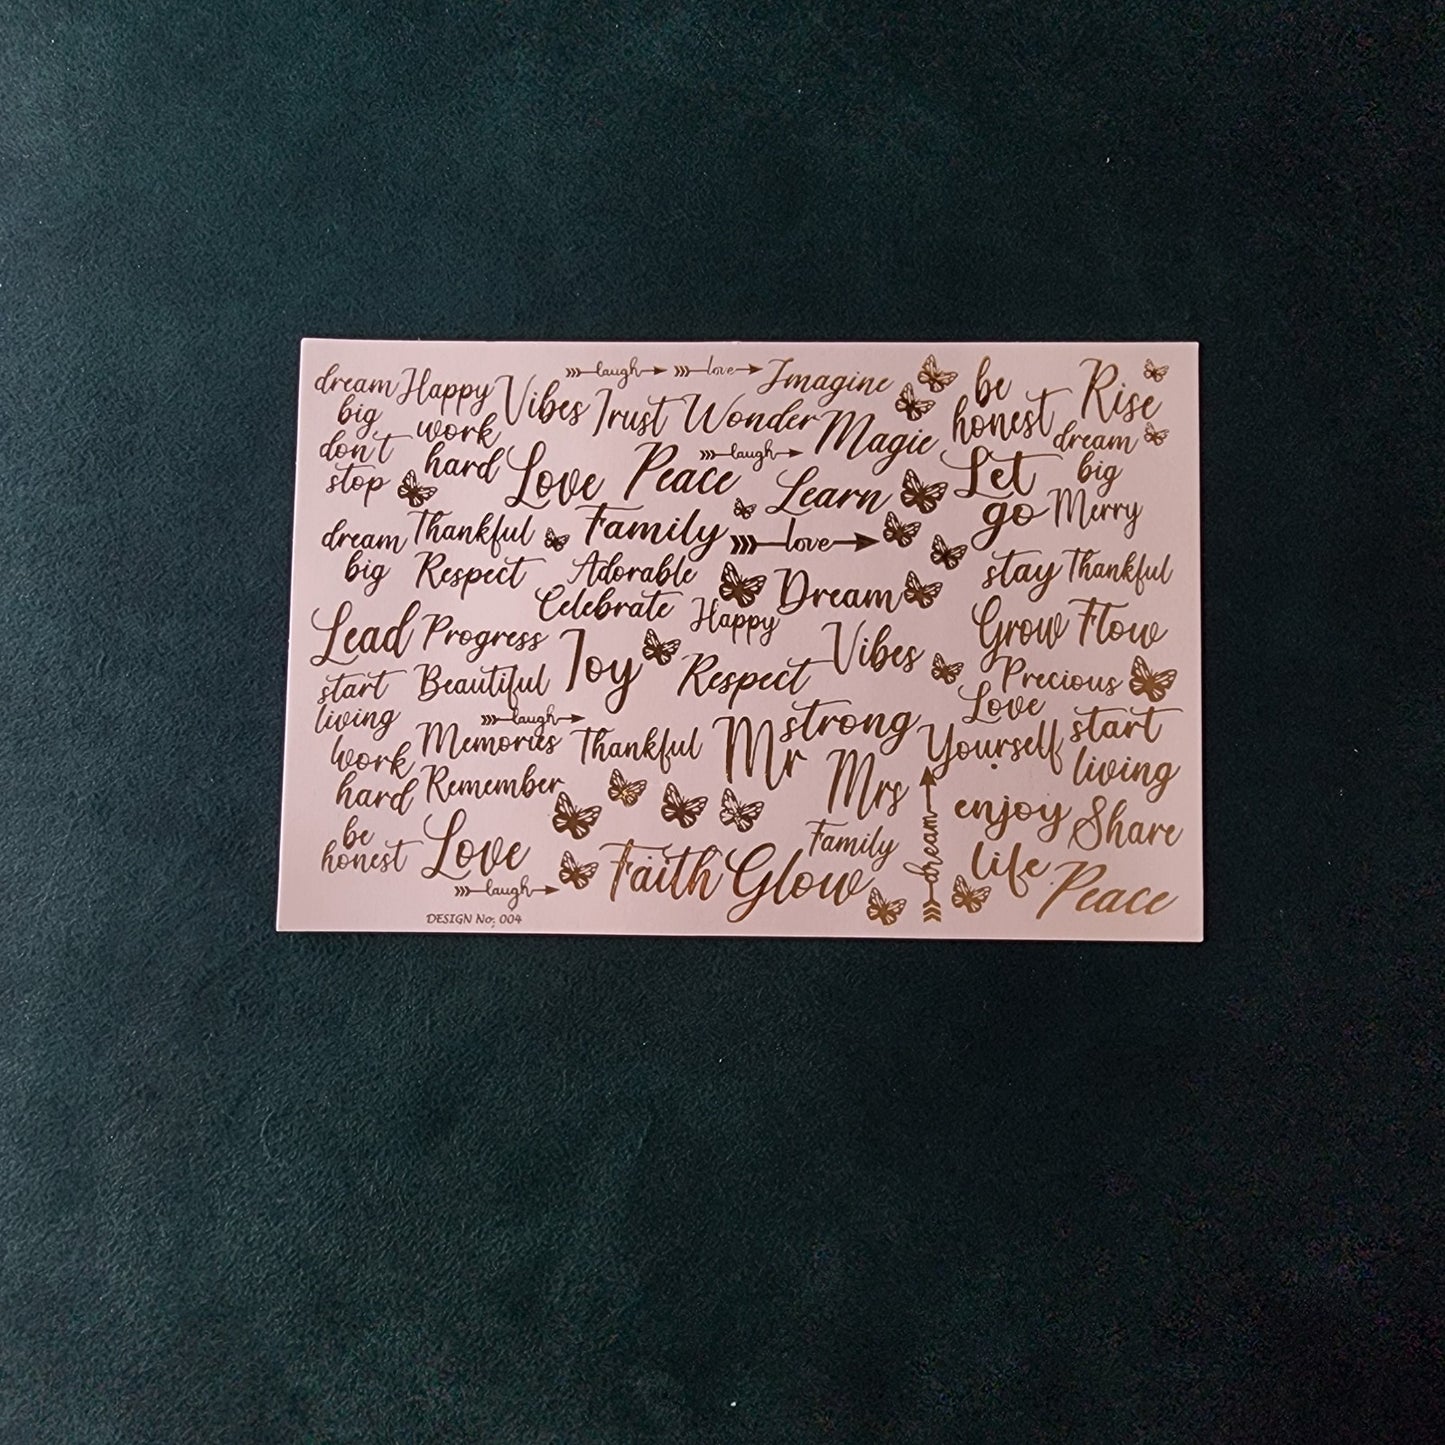 dream
big
Happy
Vibes
laugh
love
Imagine
be
honest
Rise
Trust
Wonder
Magic
work
hard
dream
big
don't
stop
Love
Peace
laugh
Learn
Let
go
Merry
dream
big
Thankful
Family
love
Respect
Adorable
Dream
stay
Thankful
Celebrate
Happy
Lead
Progress
Joy
Vibes
Grow
Flow
start
living
Beautiful
Respect
Precious
Love
Yourself
start
living
laugh
Memories
Thankful
Mr
strong
work
hard
Remember
Mrs
enjoy
life
Share
be
honest
Love
laugh
Faith
Glow
Family
dream
Peace
DESIGN No; 004